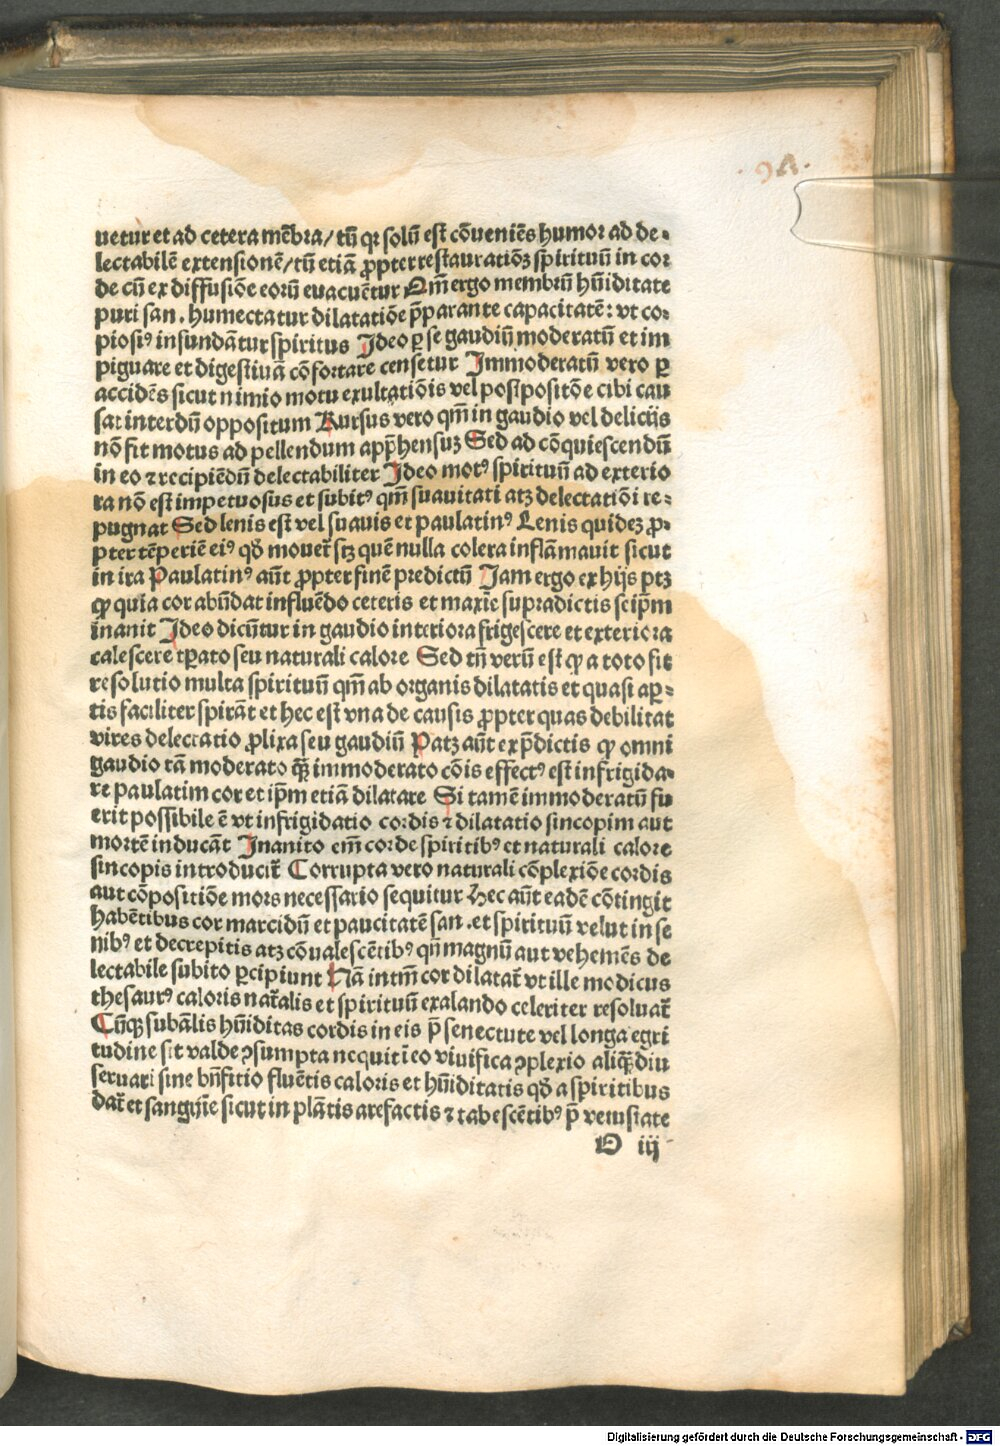 98.
uetur et ad cetera mēbra/ tū qꝛ solū est cōueniēs humor ad de⸗
lectabilē extensionē/ tū etiā ꝓpter restauratiōꝫ spirituū in cor
de cū ex diffusiōe eorū euacuētur Qm̄ ergo membrū hūiditate
puri san. humectatur dilatatiōe p̄parante capacitatē: vt co⸗
piosiꝰ insundātur spiritus Ideo ꝑ se gaudiū moderatū et im
piguare et digestiuā cōfortare censetur Immoderatū vero ꝑ
accidēs sicut nimio motu exultatiōis vel postpositōe cibi cau
sat interdū oppositum Rursus vero qm̄ in gaudio vel delicijs
nō fit motus ad pellendum app̄hensuꝫ Sed ad cōquiescendū
in eo ⁊ recipiēdū delectabiliter Ideo motꝰ spirituū ad exterio
ra nō est impetuosus et subitꝰ qm̄ suauitati atꝫ delectatiōi re⸗
pugnat Sed lenis est vel suauis et paulatinꝰ Lenis quideꝫ ꝓ⸗
pter tēperiē eiꝰ qđ mouet̄ sꝫ quē nulla colera inflāmauit sicut
in ira Paulatinꝰ aūt ꝓpter finē predictū Jam ergo ex hijs ptꝫ
ꝙ quia cor abūdat influēdo ceteris et maxīe supradictis seip̄m
inanit Ideo dicūtur in gaudio interiora frigescere et exteriora
calescere tꝑato seu naturali calore Sed tn̄ verū est ꝙ a toto fit
resolutio multa spirituū qm̄ ab organis dilatatis et quasi aꝑ⸗
tis faciliter spirāt et hec est vna de causis ꝓpter quas debilitat
vires delectatio ꝓlixa seu gaudiū Patꝫ aūt exp̄dictis ꝙ omni
gaudio tā moderato q̄ꝫ immoderato cōis effectꝰ est infrigida⸗
re paulatim cor et ip̄m etiā dilatare Si tamē immoderatū fu
erit possibile ē vt infrigidatio cordis ⁊ dilatatio sincopim aut
mortē inducāt Inanito em̄ corde spiritibꝰ et naturali calore
sincopis introducit̄ Corrupta vero naturali cōplexiōe cordis
aut cōpositiōe mors necessario sequitur Hec aūt eadē cōtingit
habētibus cor marcidū et paucitatē san. et spirituū velut in se
nibꝰ et decrepitis atꝫ cōualescētibꝰ qn̄ magnū aut vehemēs de
lectabile subito ꝑcipiunt Nā intm̄ cor dilatat̄ vt ille modicus
thesaurꝰ caloris nat̄alis et spirituū exalando celeriter resoluat̄
Cūqꝫ subālis hūiditas cordis in eis p̄ senectute vel longa egri
tudine sit valde ꝯsumpta nequit ī eo viuifica ꝯplexio aliq̄ꝫdiu
seruari sine bn̄fitio fluētis caloris et hūiditatis qđ a spiritibus
dat̄ et sanguīe sicut in plātis arefactis ⁊ tabescētibꝰ p̄ vetustate
O iij
Digitalisierung gefördert durch die Deutsche Forschungsgemeinschaft - DFG